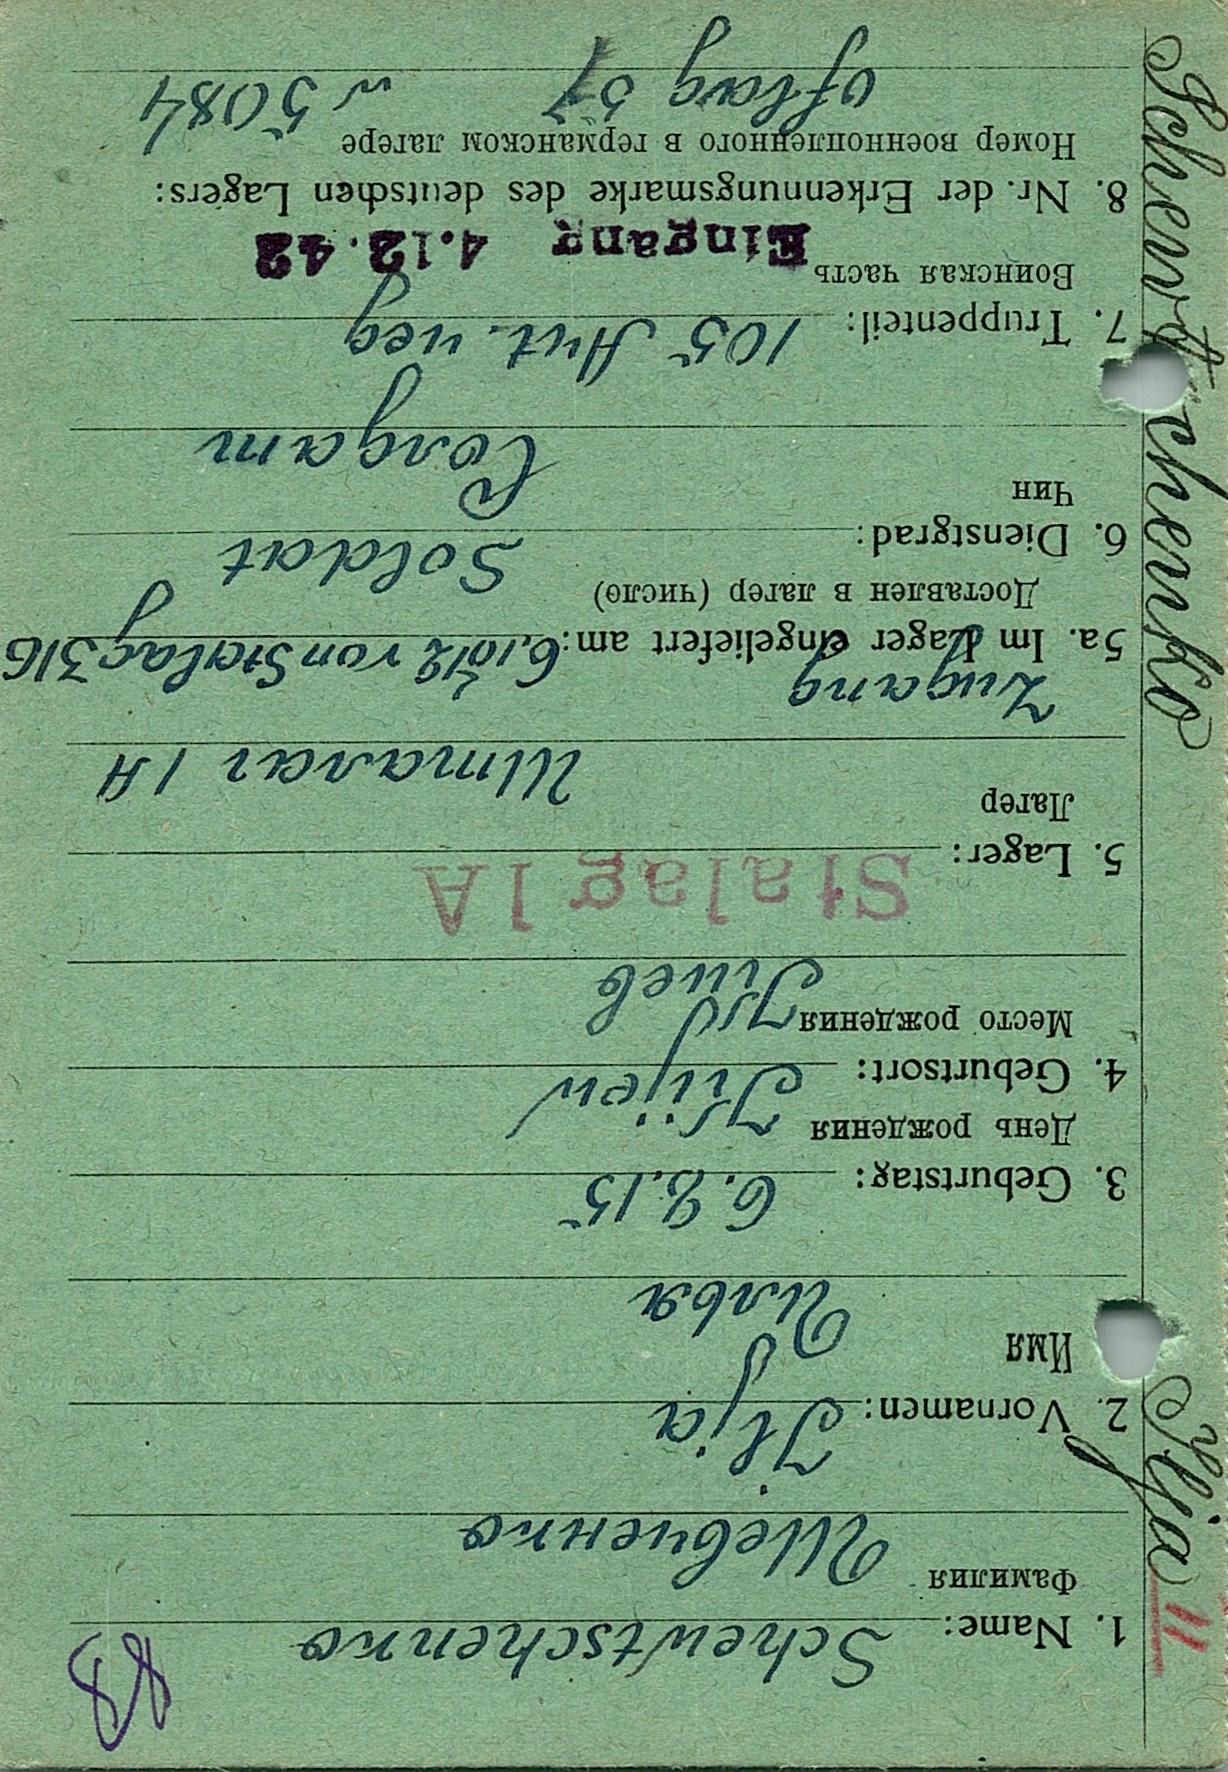 1. Name: Schewtschenko
Фамилия Шевченко
2. Vornamen: Ilja
Имя Илья
3. Geburtstag: 6.8.15
День рождения
4. Geburtsort: Kijew
Место рождения Киев
Stalag IA
5. Lager:
Лагер Шталаг IA
Zugang
5a. Im Lager eingeliefert am: 6.10.42 von Stalag 316
Доставлен в лагер (число)
6. Dienstgrad: Soldat
Чин Солдат
7. Truppenteil: 105
Воинская часть Eingang 4.12.42
8. Nr. der Erkennungsmarke des deutschen Lagers:
Номер военнопленного в германском лагере
Oflag 57 5084
Schewtschenko Ilja